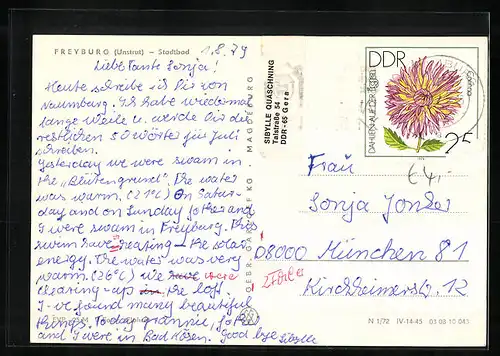 FREYBURG (Unstrut) – Stadtbad
1.8.79
Liebe Tante Sonja!
Heute schreibe ich Dir von
Naumburg. Ich habe wiedermal
lange Weile u. werde Dir die
restlichen 50 Wörter für Juli
schreiben.
Yesterday we were swam in
the „Blütengrund". The water
was warm. (21°C) On Satur-
day and on Sunday father and
I were swam in Freyburg. This
swim have heating – the solar
energy. The water was very
warm. (26°C) We have were
clearing-up the loft.
I've found many beautiful
things. Today grannie,
and I were in Bad Kösen. Good bye Sibylle
2 Fehler
MAGDEBURG
SIBYLLE QUASCHNING
Talstraße 54
DDR-65 Gera
DDR
DAHLIEN AUF DER
25
€4,-
Frau
Sonja Jonker
D8000 München 81
Kirchheimerstr. 12
N 1/72 IV-14-45 03 03 10 043